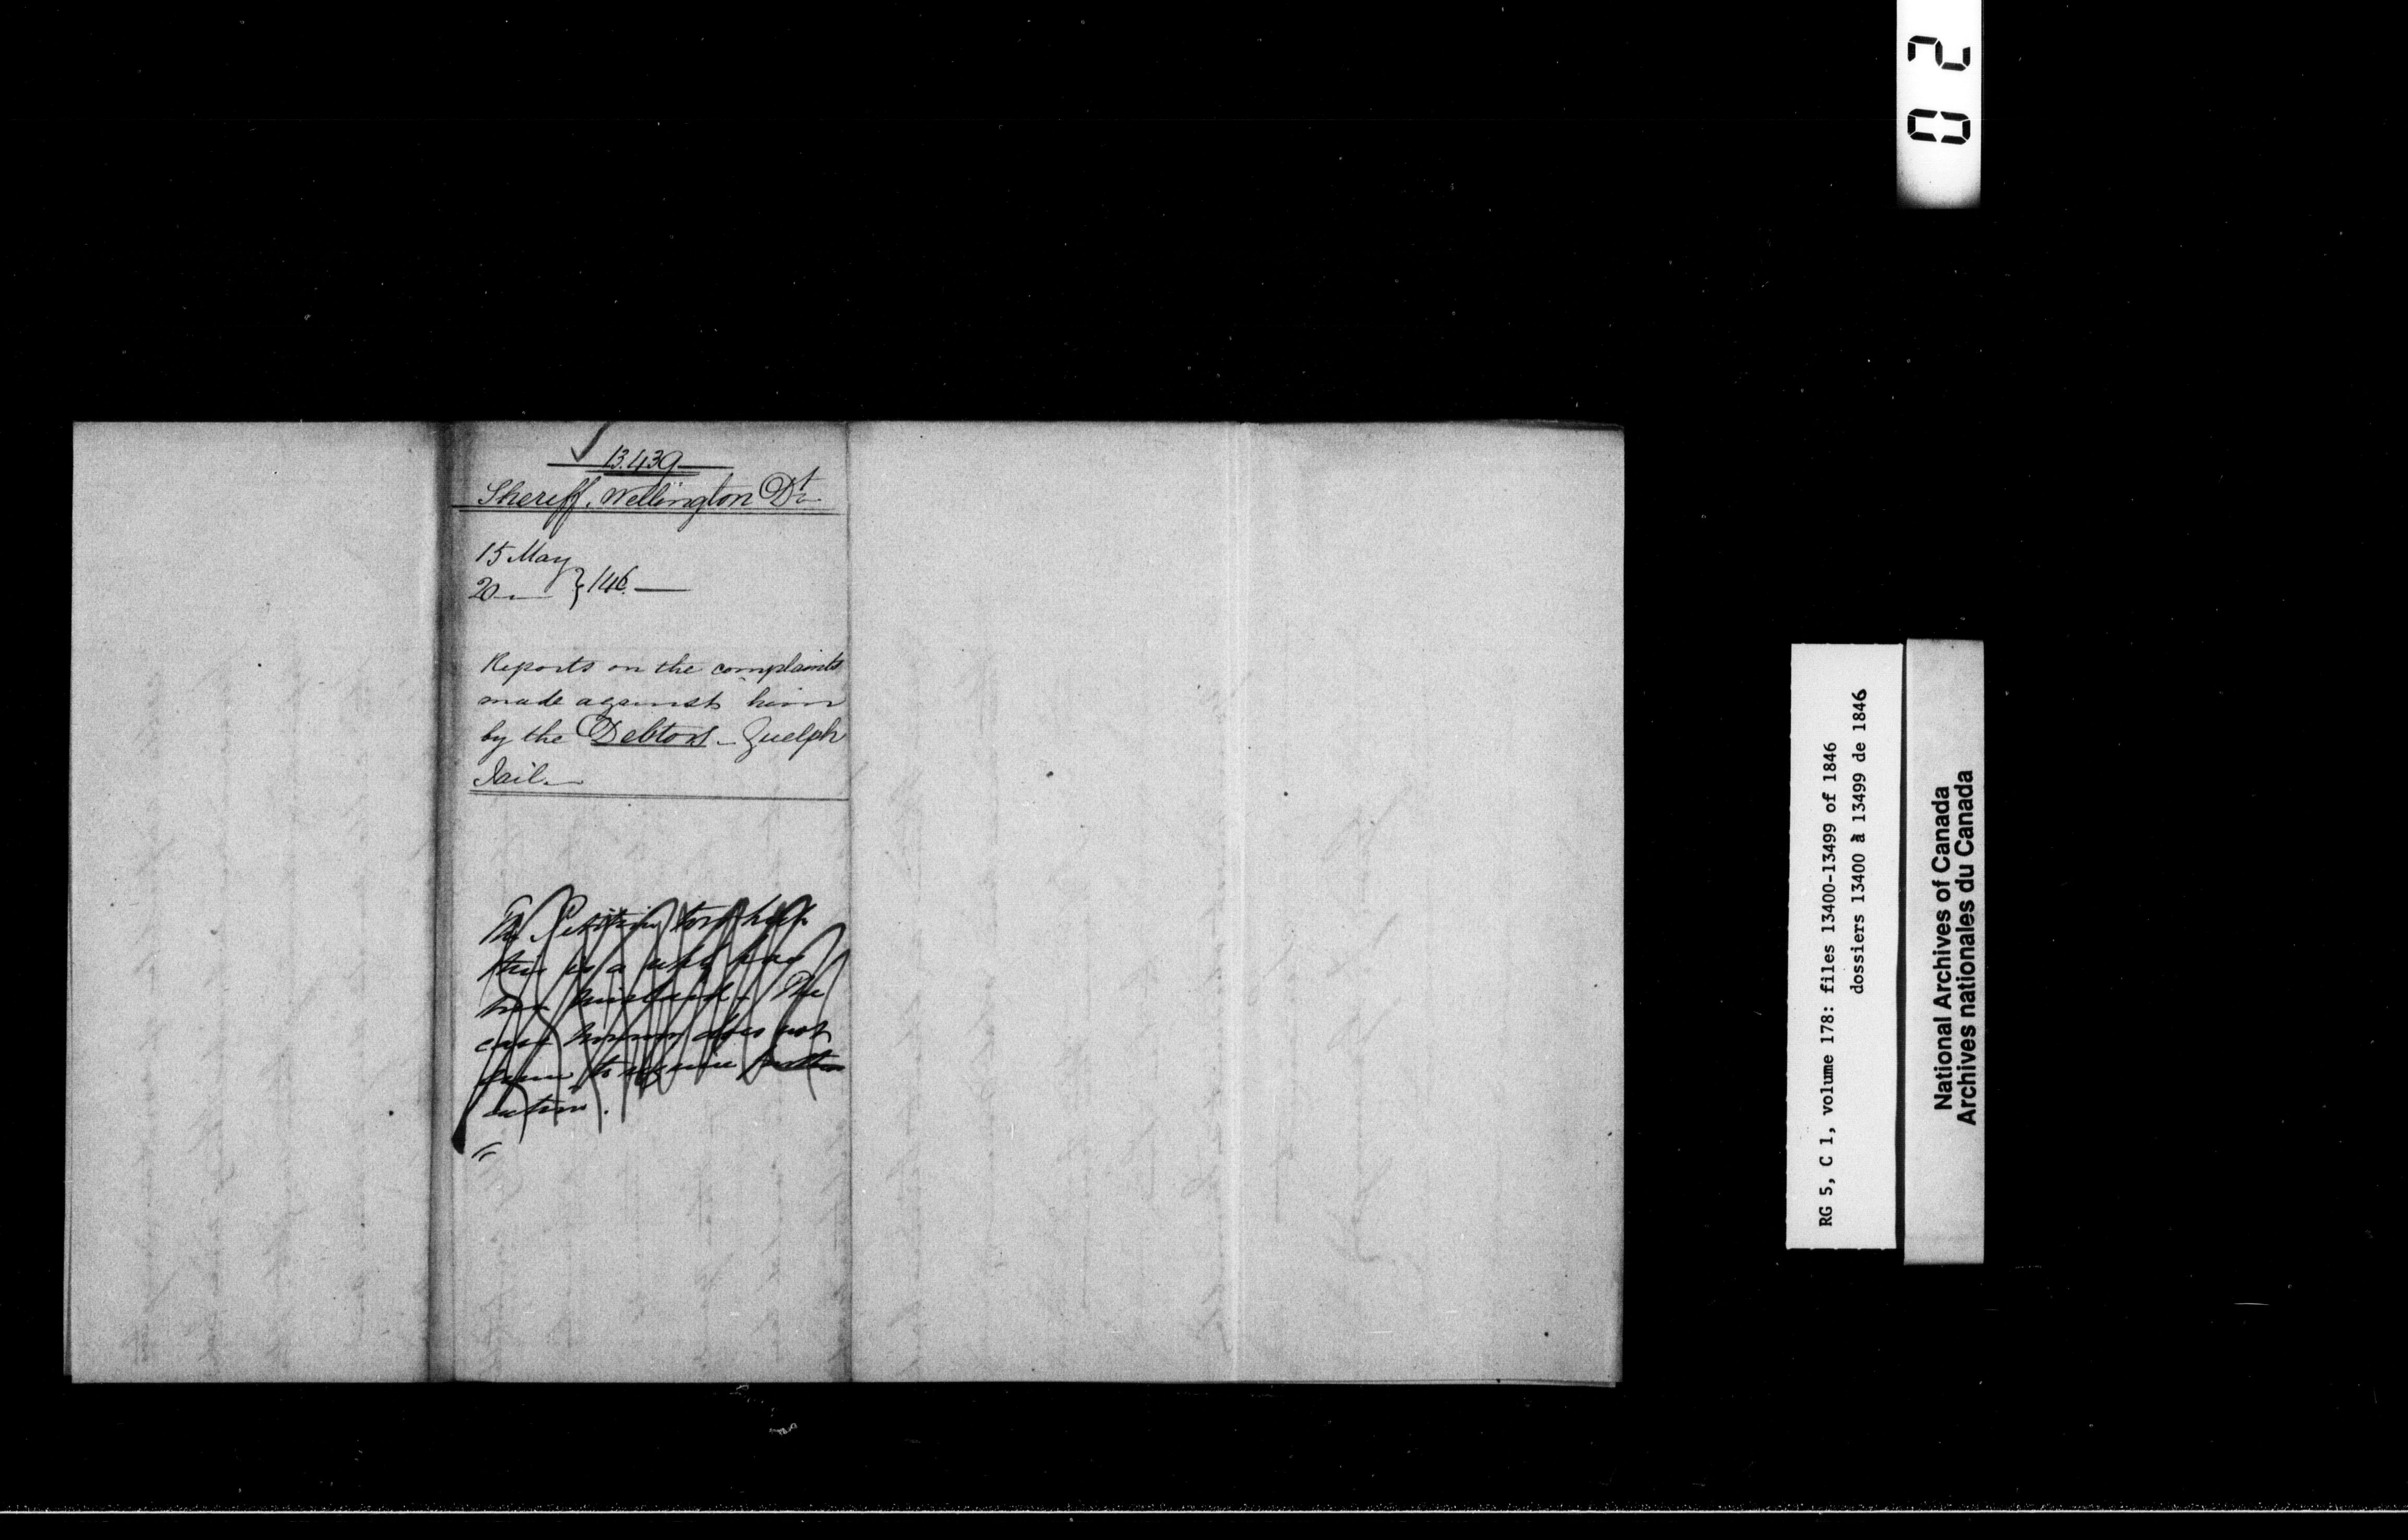 13.439
Sheriff, Wellington Dt
15 May
20 — } /46. —
Reports on the complaints
made against him
by the Debtors — Guelph
Jail. —
The Petition to which
this is a reply has
been mislaid. The
case however does not
seem to require further
action.
02
RG 5, C 1, volume 178: files 13400-13499 of 1846
dossiers 13400 à 13499 de 1846
National Archives of Canada
Archives nationales du Canada